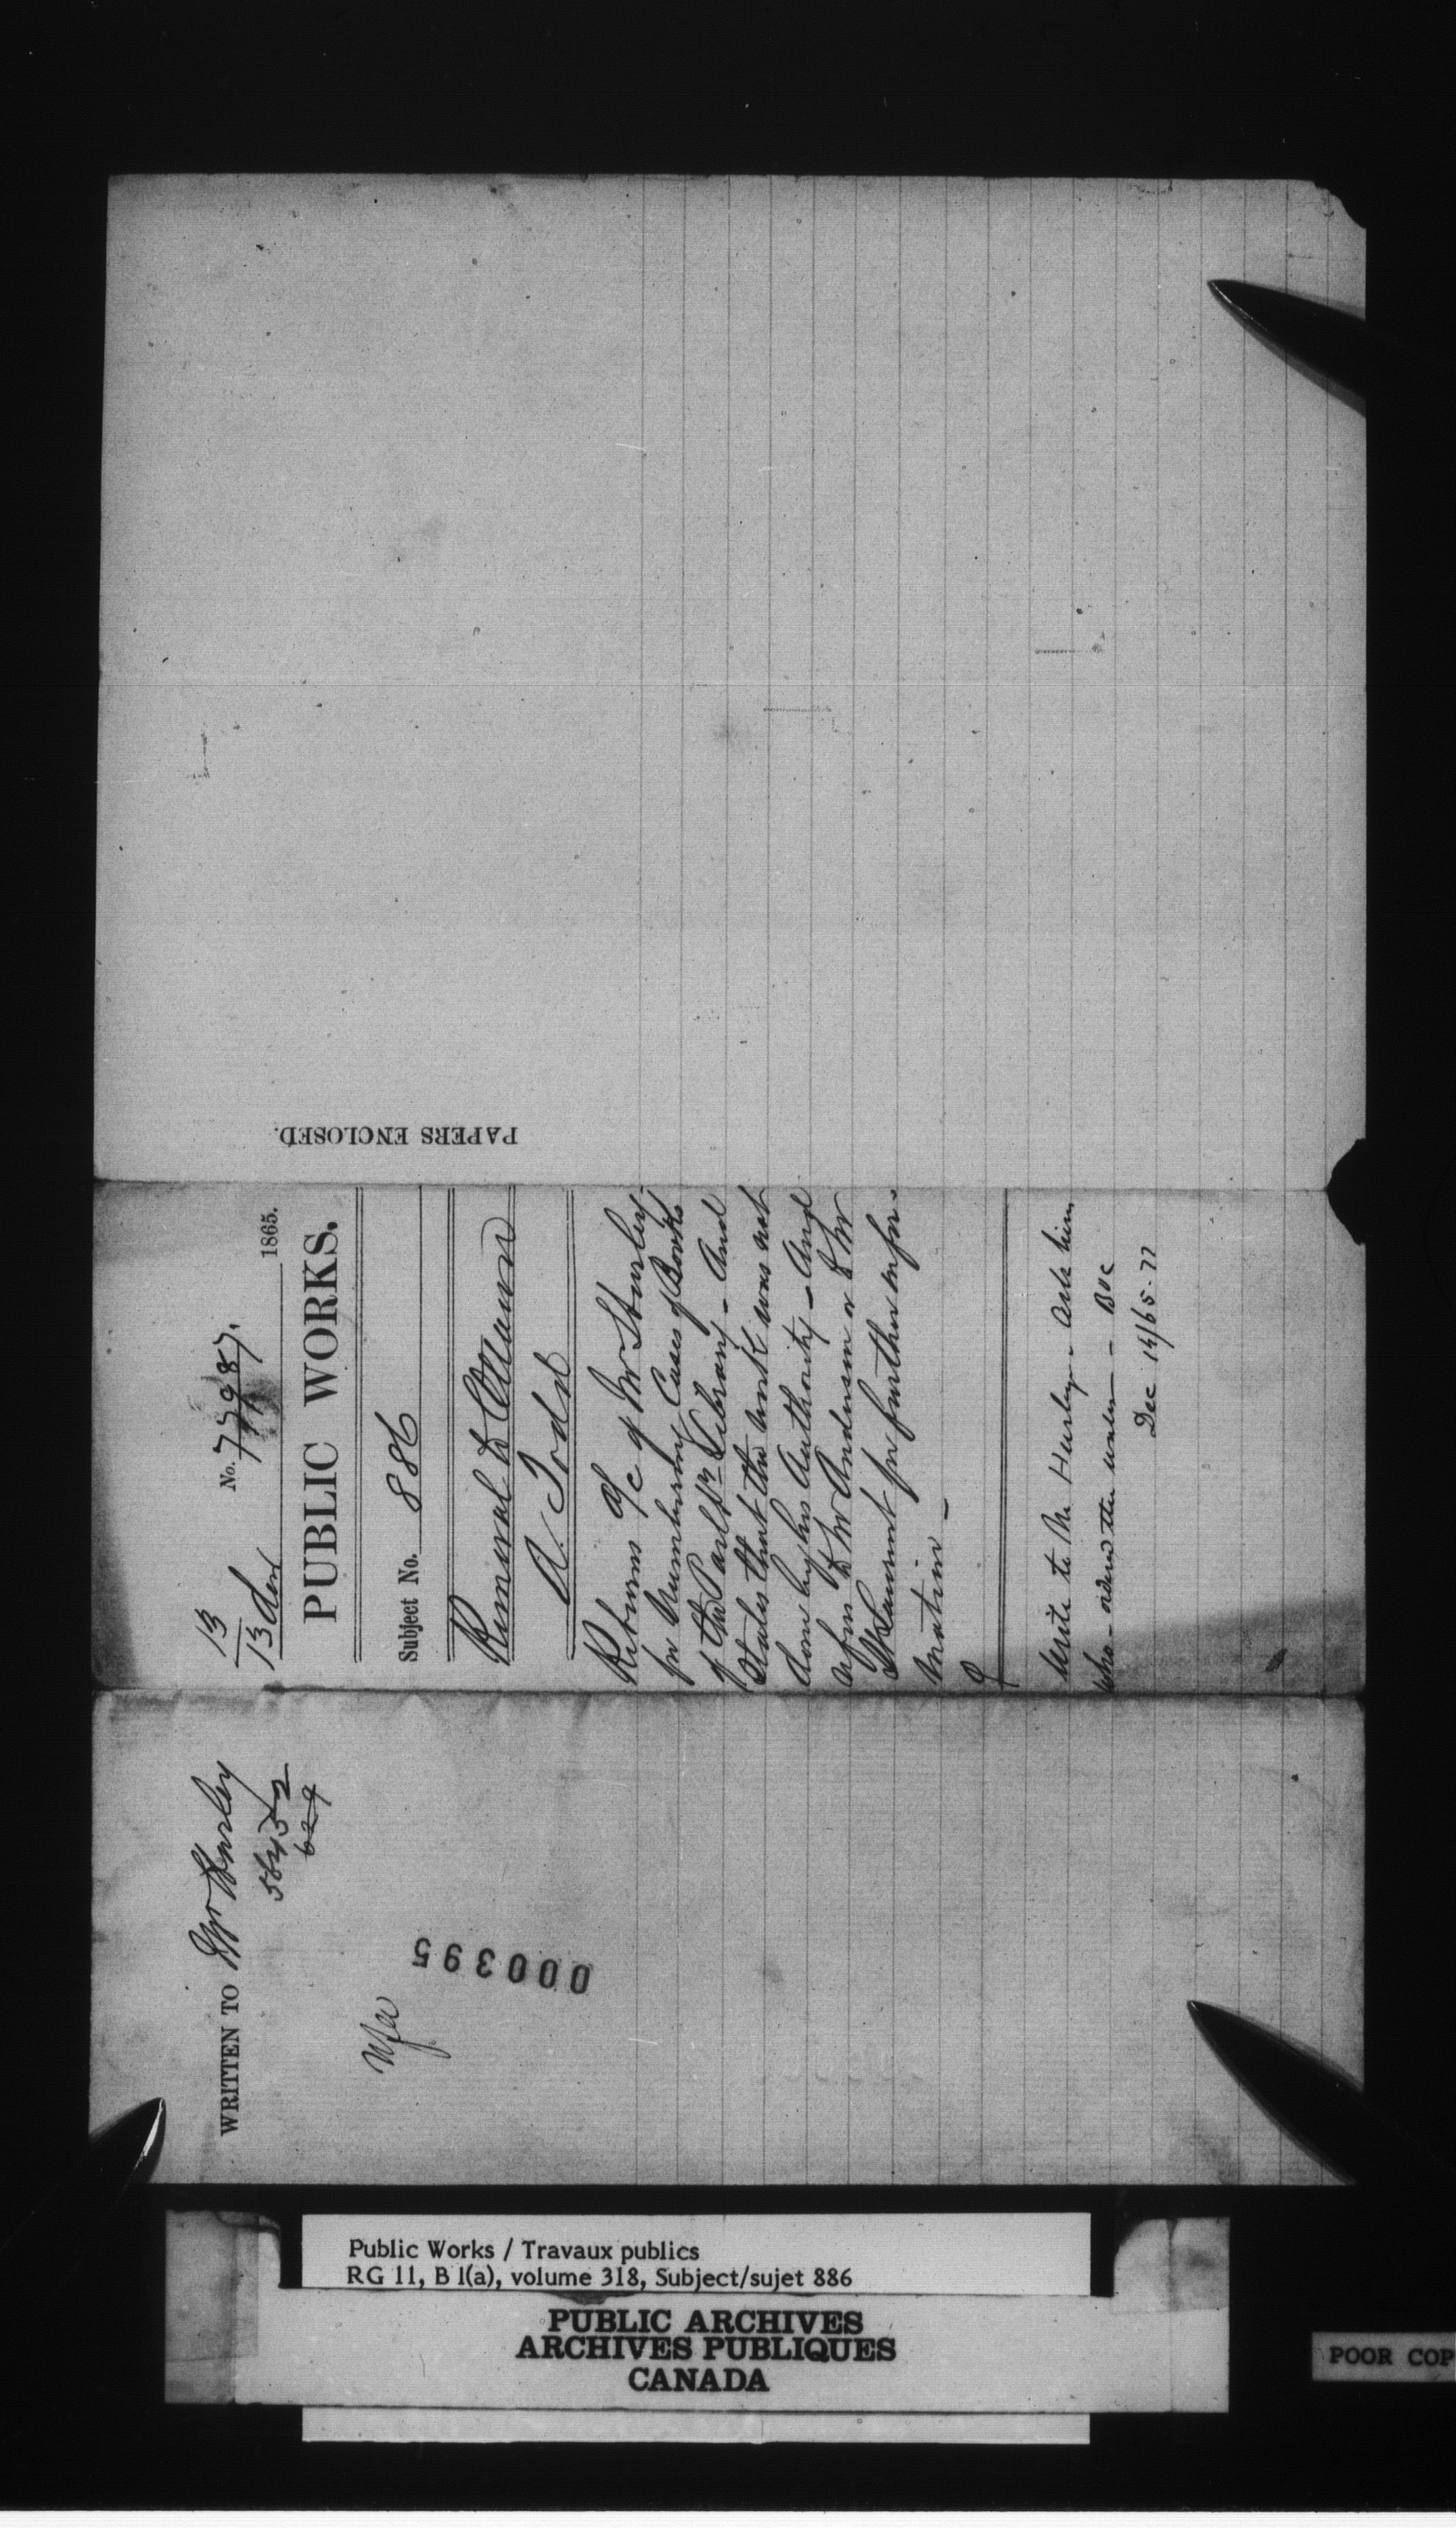 13
13 Dec
No. 77987.
1865.
PUBLIC WORKS.
Subject No. 886
Removal to Ottawa
A. Todd
Returns a/c of Mr Hurley
for numbering Cases of Books
of the Parlty Library - And
States that the work was not
done by his Authority - And
refers to Mr Anderson or to Mr
for further infor-
mation -
Write to Mr Hurley - Ask him
who - ordered the work -
Dec 14/65 - 77
PAPERS ENCLOSED.
WRITTEN TO Mr Hurley
629
000395
Public Works / Travaux publics
RG 11, B 1(a), volume 318, Subject/sujet 886
PUBLIC ARCHIVES
ARCHIVES PUBLIQUES
CANADA
POOR COP